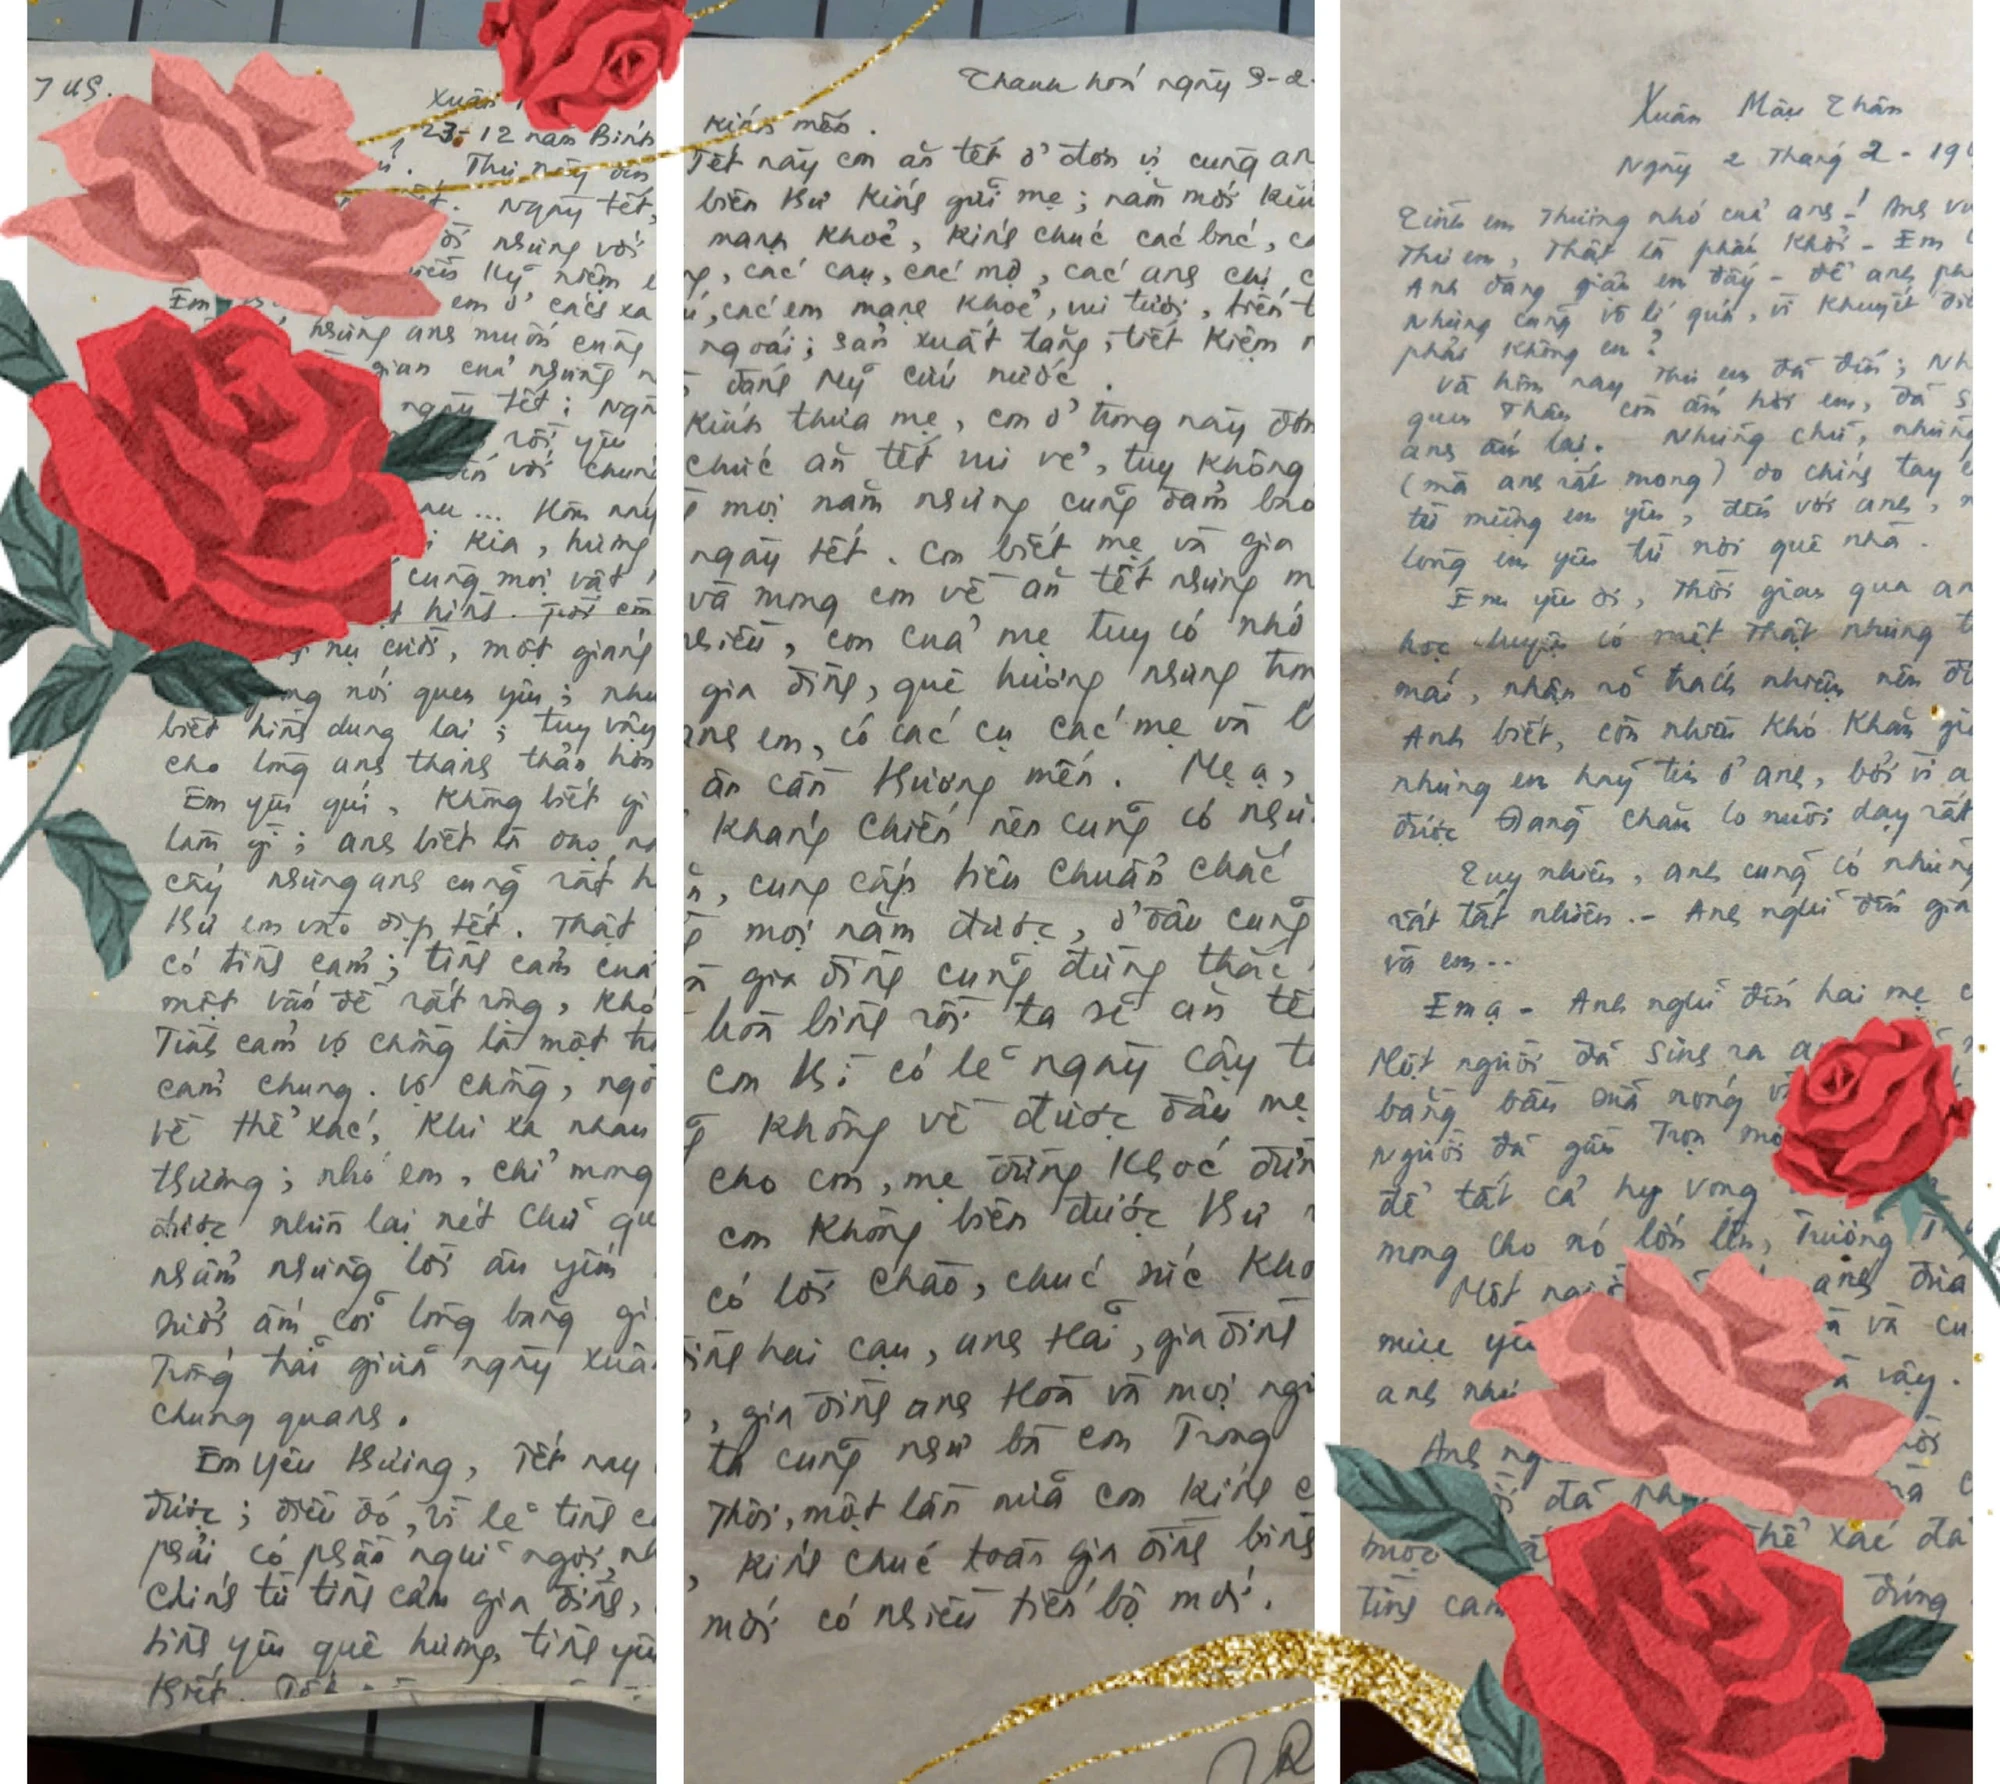 7 US.
Xuân
23-12 năm Bính
Thư này
Ngày tết,
nhưng với
kỷ niệm
Em em ở cách xa
nhưng anh muốn cùng
gian của những
ngày tết; Ngà
rồi yêu
đến với chúng
au... Hôm nay
kia, hứng
cùng mọi vật
nụ cười, một giọng
nói quen yêu; như
biết hình dung lại; tuy vậy
cho lòng anh thanh thản hơn
Em yêu quí, không biết gì
làm gì; anh biết là
cây nhưng anh cũng rất h
thư em vào dịp tết. Thật
có tình cảm; tình cảm của
một vấn đề rất rộng, khô
Tình cảm vợ chồng là một
cảm chung. Vợ chồng, ngo
về thể xác, khi xa nhau
thương; nhớ em, chỉ mong
được nhìn lại nét chữ qu
nhẩm những lời âu yếm
sưởi ấm cõi lòng băng gi
Trống trải giữa ngày xuâ
chung quanh.
Em yêu thương, Tết nay
được; điều đó, vì lẽ tình c
phải có phần nghỉ ngơi, nh
chính từ tình cảm gia đình,
tình yêu quê hương, tình yêu
thiết.
Thanh hoá ngày 9-2-
kính mến.
Tết này con ăn tết ở đơn vị cũng an
biên thư kính gửi mẹ; năm mới kín
mạnh khoẻ, kính chúc các bác, c
các cậu, các mợ, các anh chị, c
ú, các em mạnh khoẻ, vui tươi, tiến t
ngoái; sản xuất tăng, tiết kiệm
đánh Mỹ cứu nước.
Kính thưa mẹ, con ở trong này đơn
chức ăn tết vui vẻ, tuy không
mọi năm nhưng cũng đảm bảo
ngày tết. Con biết mẹ và gia
và mong con về ăn tết nhưng m
nhiều, con của mẹ tuy có nhớ
gia đình, quê hương nhưng tron
anh em, có các cụ các mẹ và b
ân cần thương mến. Mẹ ạ,
kháng chiến nên cũng có nhữ
cung cấp tiêu chuẩn chắc
mọi năm được, ở đâu cũng
gia đình cũng đừng thắc
hoà bình rồi ta sẽ ăn tế
con thì có lẽ ngày cậy t
không về được đâu mẹ
cho con, mẹ đừng khóc đừn
con không biên được thư
có lời chào, chúc sức kho
ình hai cậu, anh Hải, gia đình
, gia đình anh Hoà và mọi ngư
ta cũng như bà con Trong
Thôi, một lần nữa con kính c
kính chúc toàn gia đình bình
mới có nhiều tiến bộ mới.
Xuân Mậu Thân
Ngày 2 Tháng 2 - 19
Tình em Thương nhớ của anh! Anh vu
Thư em, Thật là phấn khởi - Em
Anh đang giận em đấy - để anh ph
Nhưng cũng vô lí quá, vì khuyết điể
phải không em?
Và hôm nay thư em đã đến; Nh
quen Thân còn ấm hơi em, đã s
anh âu lại. Những chữ, những
(mà anh rất mong) do chính tay
tết mừng em yêu, đến với anh,
lòng em yêu từ nơi quê nhà.
Em yêu ơi, Thời gian qua an
học luyện có mệt Thật nhưng t
mái, nhận rõ trách nhiệm nên
Anh biết, còn nhiều khó khăn gi
nhưng em hãy tin ở anh, bởi vì a
được Đảng chăm lo nuôi dạy rất
Tuy nhiên, anh cũng có những
rất tất nhiên.- Anh nghĩ đến gia
và em..
Em ạ - Anh nghĩ đến hai mẹ
Một người đã sinh ra a
bằng bầu sữa nóng v
Người đã gửi Trọn
để tất cả hy vọng
mong cho nó lớn lên, Trưởng T
Một ngườ anh
mực yê và
anh như vậy.
Anh ng
đã
buộc thể xác đã
tình cảm đúng